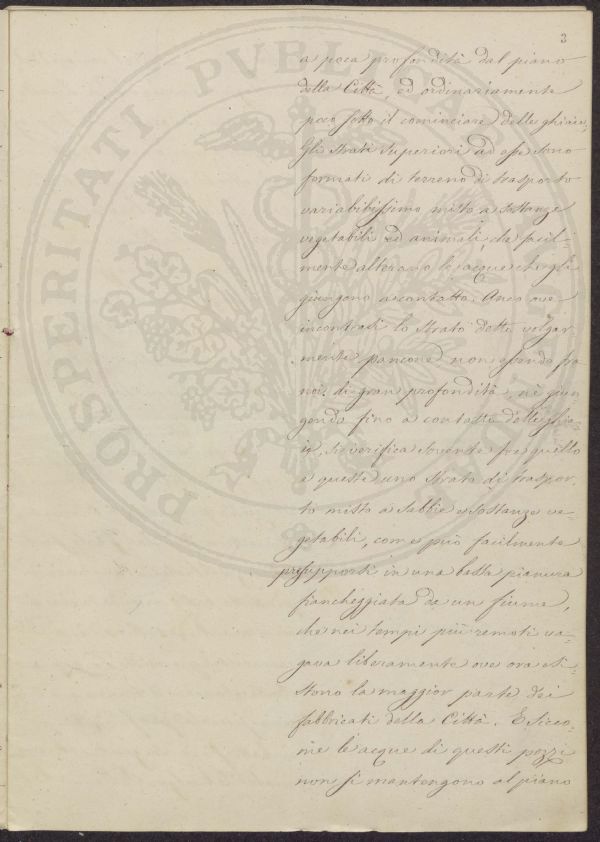 3
a poca profondità dal piano
della Città, ed ordinariamente
poco sotto il cominciare delle ghiaie,
Gli strati superiori ad esse sono
formati di terreno di trasporto
variabibissimo misto a sostanze
vegetabili ed animali che facil-
mente alterano le acque che gli
giungono a contatto. Anco ove
incontrasi lo strato detto volgar
mente pancone non essendo fra
noi di gran profondità, nè giun
gendo fino a contatto delle ghia-
ie, si verifica sovente fra quello
e queste uno strato di traspor-
to misto a sabbie e sostanze ve-
getabili, come può facilmente
presupporsi in una bassa pianura
fiancheggiata da un fiume,
che nei tempi più remoti va-
gava liberamente ove ora esi-
stono la maggior parte dei
fabbricati della Città. E sicco-
me le acque di questi pozzi
non si mantengono al piano
PROSPERITATI PVBLICAE